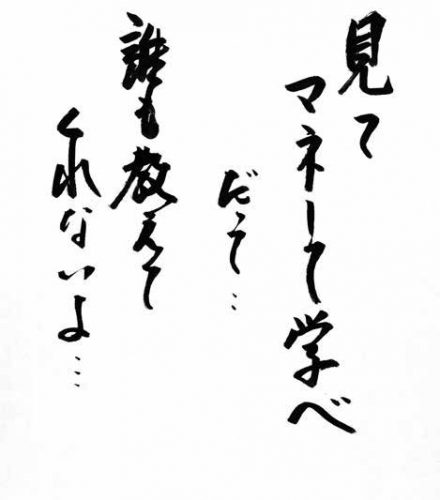 見て
マネして学べ
だって…
誰も教えて
くれないよ…